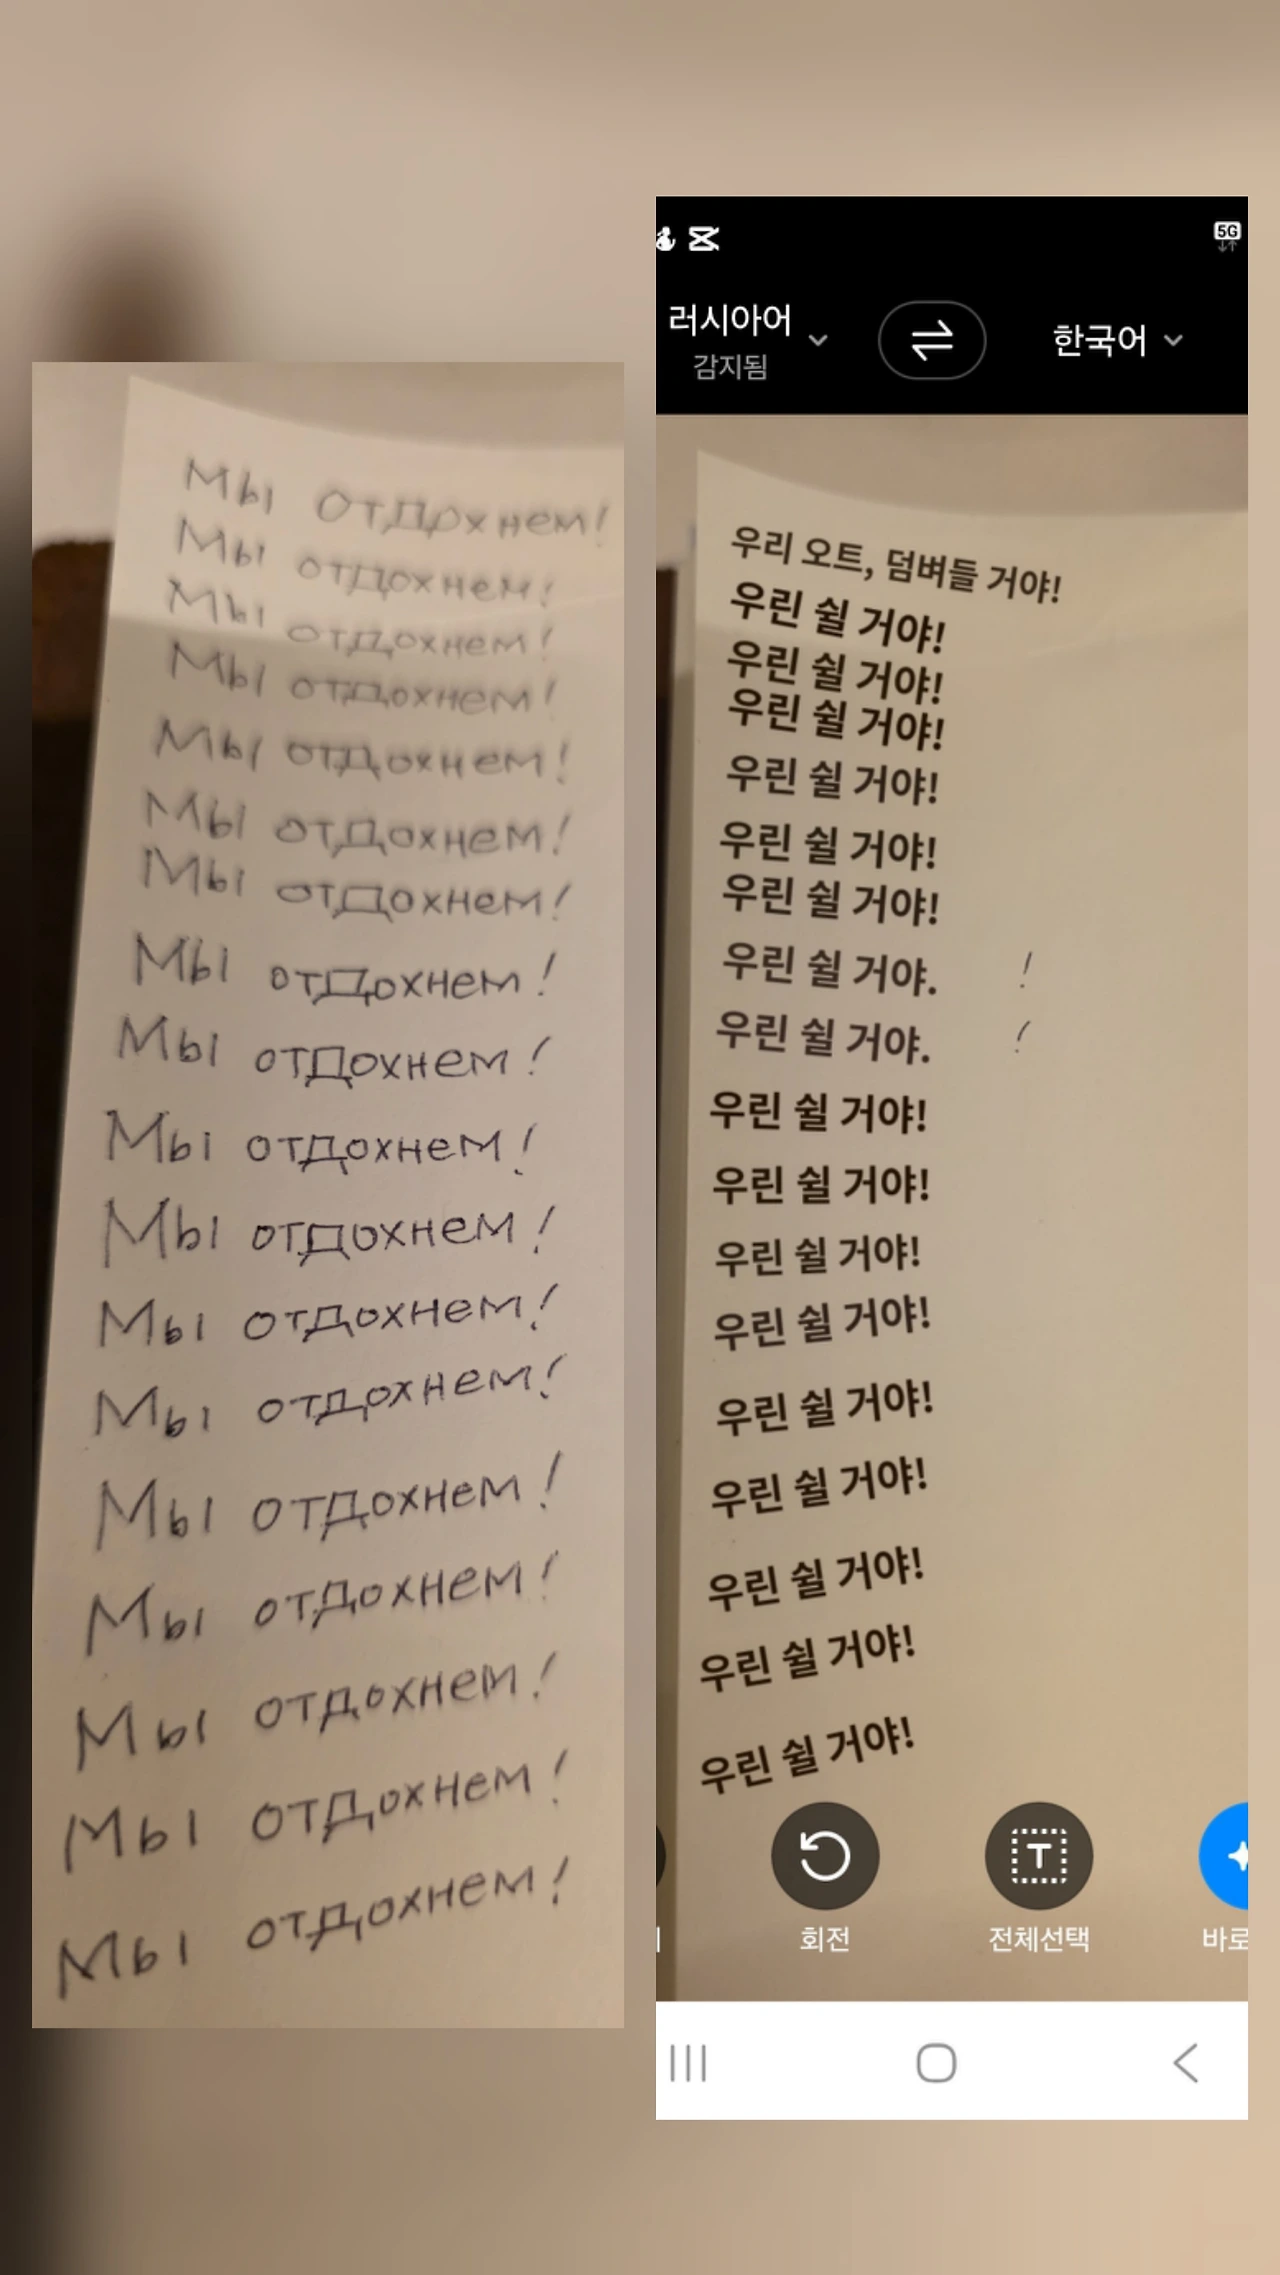 Мы отдохнем!
Мы отдохнем!
Мы отдохнем!
Мы отдохнем!
Мы отдохнем!
Мы отдохнем!
Мы отдохнем!
Мы отдохнем!
Мы отдохнем!
Мы отдохнем!
Мы отдохнем!
Мы отдохнем!
Мы отдохнем!
Мы отдохнем!
Мы отдохнем!
Мы отдохнем!
Мы отдохнем!
Мы отдохнем!
5G
러시아어
감지됨
한국어
우리 오트, 덤벼들 거야!
우린 쉴 거야!
우린 쉴 거야!
우린 쉴 거야!
우린 쉴 거야!
우린 쉴 거야!
우린 쉴 거야!
우린 쉴 거야. !
우린 쉴 거야. !
우린 쉴 거야!
우린 쉴 거야!
우린 쉴 거야!
우린 쉴 거야!
우린 쉴 거야!
우린 쉴 거야!
우린 쉴 거야!
우린 쉴 거야!
우린 쉴 거야!
T
회전
전체선택
바로